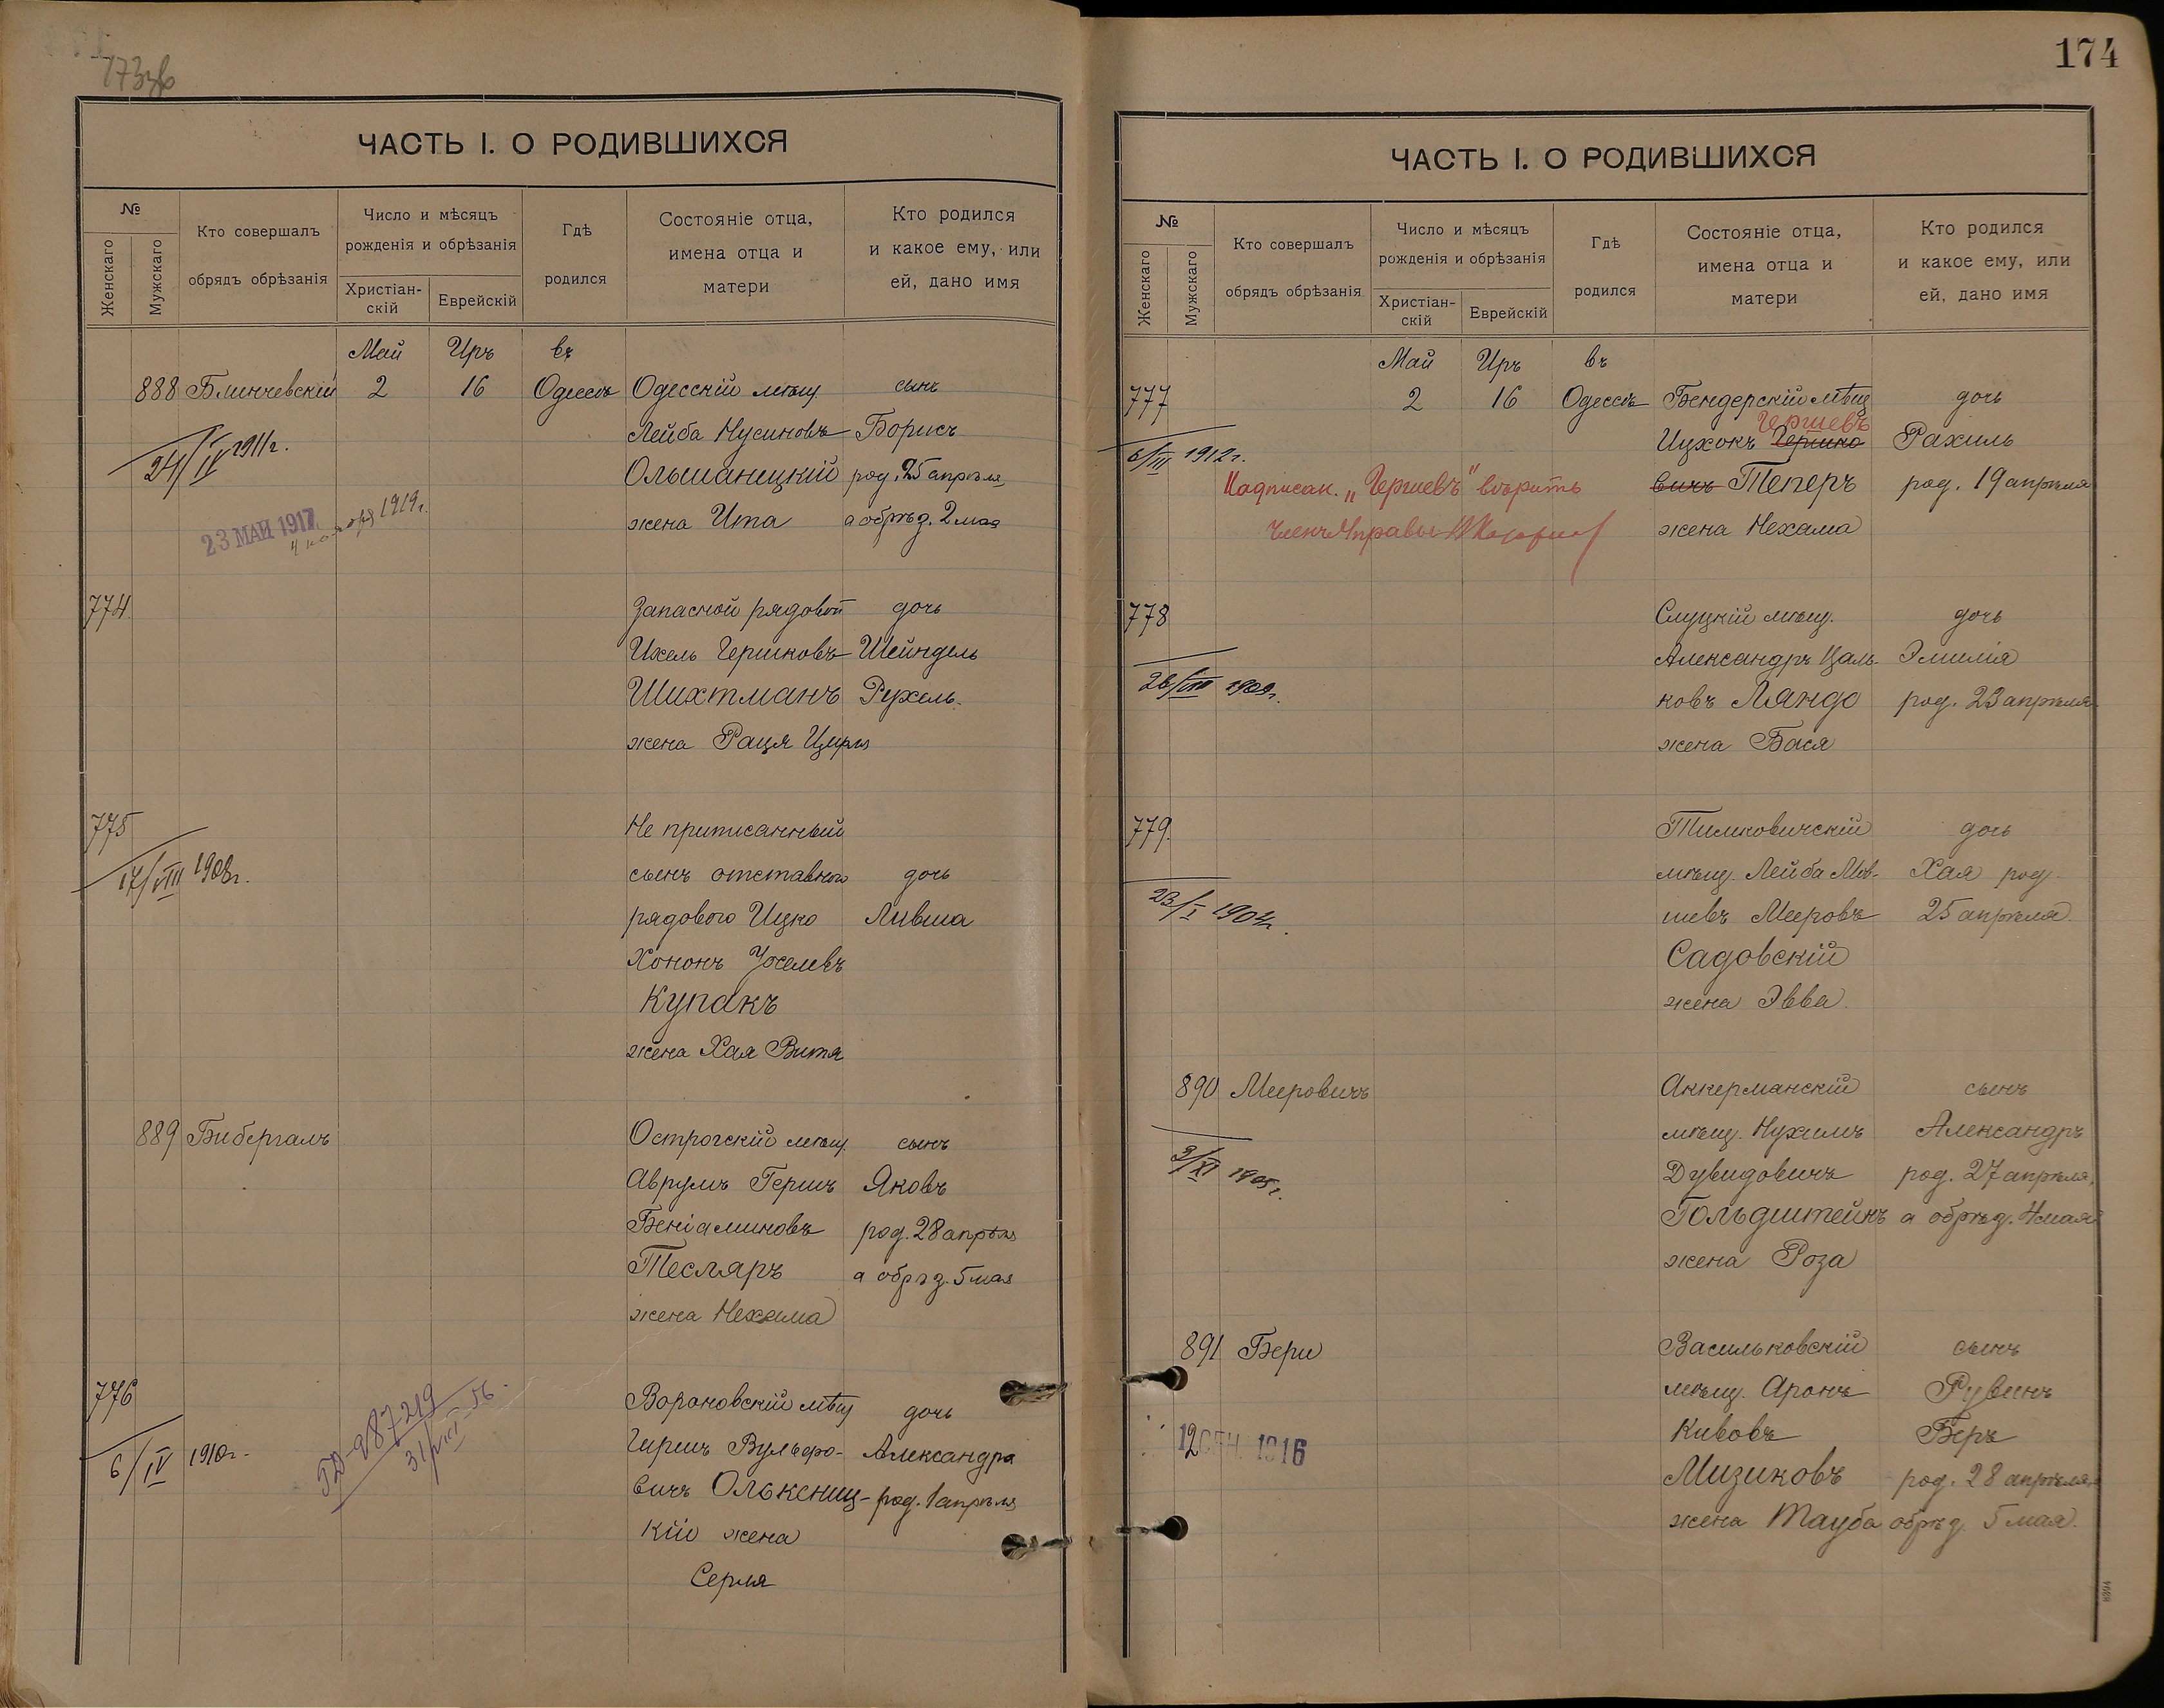 173зв
ЧАСТЬ I. О РОДИВШИХСЯ
№
Женскаго
Мужскаго
Кто совершалъ
обрядъ обрѣзанія
Число и мѣсяцъ
рожденія и обрѣзанія
Христіан-
скій
Еврейскій
Гдѣ
родился
Состояніе отца,
имена отца и
матери
Кто родился
и какое ему, или
ей, дано имя
Май Иръ въ
888 Блинчевскій 2 16 Одессѣ Одесскій мѣщ сынъ
Лейба Нусиновъ Борисъ
24/IV 1911г.
Ольшаницкій род. 25 апрѣля
жена Ита а обрѣз. 2 мая
23 МАЙ 1917
1919г.
774. Запасной рядовой дочь
Ихель Гершковъ Шейндель
Шихтманъ Рухель
жена Раця Цирля
775 Не приписанный
сынъ отставного дочь
17/VIII 1908г.
рядового Ицко Ливша
Хононъ
Купакъ
жена Хая Витя
889 Бибергалъ Острогскій мѣщ. сынъ
Аврумъ Гершъ Яковъ
Беніаминовъ род. 28 апрѣля
Тесляръ а обрѣз. 5 мая
жена Нехама
776 Вороновскій мѣщ дочь
Гиршъ Вульфо- Александра
6/IV 1910г.
вичъ Олькениц- род. 1 апрѣля
кій жена
Серля
987219
31/VIII 56.
174
ЧАСТЬ I. О РОДИВШИХСЯ
№
Женскаго
Мужскаго
Кто совершалъ
обрядъ обрѣзанія
Число и мѣсяцъ
рожденія и обрѣзанія
Христіан-
скій
Еврейскій
Гдѣ
родился
Состояніе отца,
имена отца и
матери
Кто родился
и какое ему, или
ей, дано имя
Май Иръ въ
777 2 16 Одессѣ Бендерскій мѣщ дочь
Гершевъ
Ицхокъ Гершко Рахиль
6/III 1912г.
вичъ Теперъ род. 19 апрѣля
Надписан. „Гершевъ" вѣрить
жена Нехама
Членъ Управы
778 Слуцкій мѣщ. дочь
Александръ Цаль- Эмилія
26/VIII 1909г.
ковъ Ляндо род. 23 апрѣля
жена Бася
779. Тимковичскій дочь
мѣщ. Лейба Мов- Хая род.
23/I 1904г.
шевъ Мееровъ 25 апрѣля.
Садовскій
жена Эвва.
890 Мееровичъ Аккерманскій сынъ
мѣщ. Нухимъ Александръ
3/XI 1905г.
Дувидовичъ род. 27 апрѣля,
Гольдштейнъ а обрѣз. 4 мая
жена Роза
891 Бери Васильковскій сынъ
мѣщ. Аронъ Рувинъ
Кивовъ Беръ
12 СЕН. 1916
Мизиковъ род. 28 апрѣля,
жена Тауба обрѣз. 5 мая.